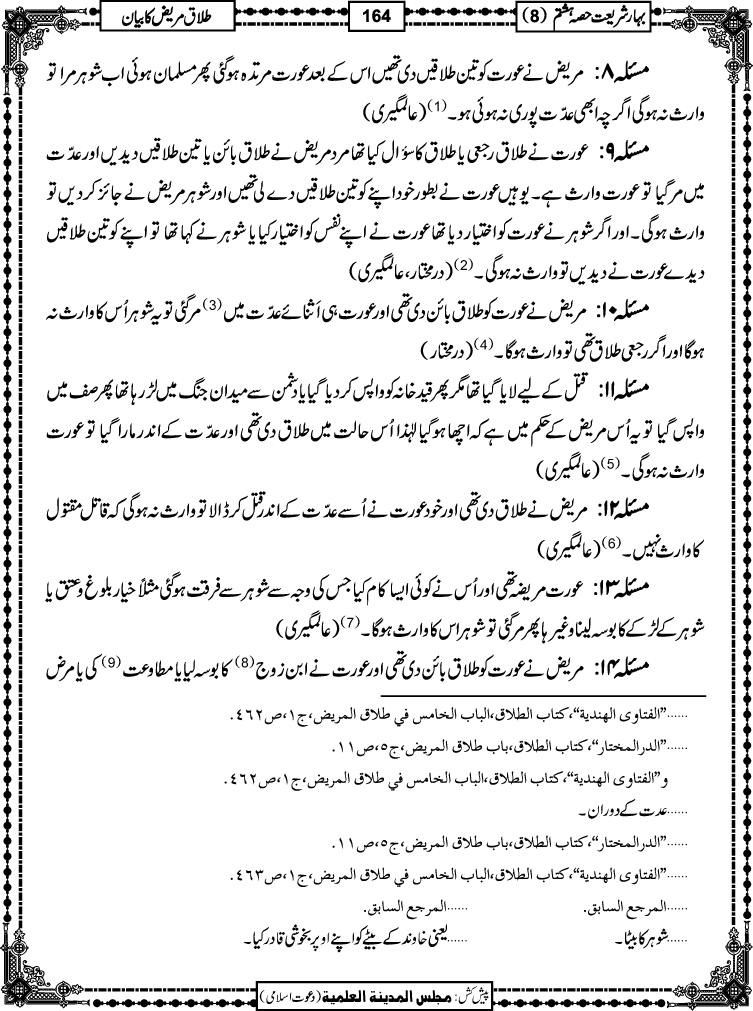 بہارِ شریعت حصہ ہشتم (8)
164
طلاق مریض کا بیان
مسئلہ ۸: مریض نے عورت کو تین طلاقیں دی تھیں اس کے بعد عورت مرتدہ ہوگئی پھر مسلمان ہوئی اب شوہر مرا تو
وارث نہ ہوگی اگرچہ ابھی عدّت پوری نہ ہوئی ہو۔ (1) (عالمگیری)
مسئلہ ۹: عورت نے طلاق رجعی یا طلاق کا سؤال کیا تھا مرد مریض نے طلاق بائن یا تین طلاقیں دیدیں اور عدّت
میں مر گیا تو عورت وارث ہے۔ یوہیں عورت نے بطور خود اپنے کو تین طلاقیں دے لی تھیں اور شوہر مریض نے جائز کر دیں تو
وارث ہوگی۔ اور اگر شوہر نے عورت کو اختیار دیا تھا عورت نے اپنے نفس کو اختیار کیا یا شوہر نے کہا تھا تو اپنے کو تین طلاقیں
دیدے عورت نے دیدیں تو وارث نہ ہوگی۔ (2) (درمختار، عالمگیری)
مسئلہ ۱۰: مریض نے عورت کو طلاق بائن دی تھی اور عورت ہی اَثنائے عدّت میں (3) مر گئی تو یہ شوہر اُس کا وارث نہ
ہوگا اور اگر رجعی طلاق تھی تو وارث ہوگا۔ (4) (درمختار)
مسئلہ ۱۱: قتل کے لیے لایا گیا تھا مگر پھر قید خانہ کو واپس کر دیا گیا یا دشمن سے میدان جنگ میں لڑ رہا تھا پھر صف میں
واپس گیا تو یہ اُس مریض کے حکم میں ہے کہ اچھا ہوگیا لہٰذا اُس حالت میں طلاق دی تھی اور عدّت کے اندر مارا گیا تو عورت
وارث نہ ہوگی۔ (5) (عالمگیری)
مسئلہ ۱۲: مریض نے طلاق دی تھی اور خود عورت نے اُسے عدّت کے اندر قتل کر ڈالا تو وارث نہ ہوگی کہ قاتل مقتول
کا وارث نہیں۔ (6) (عالمگیری)
مسئلہ ۱۳: عورت مریضہ تھی اور اُس نے کوئی ایسا کام کیا جس کی وجہ سے شوہر سے فرقت ہوگئی مثلاً خیار بلوغ و عتق یا
شوہر کے لڑکے کا بوسہ لینا وغیرہا پھر مر گئی تو شوہر اس کا وارث ہوگا۔ (7) (عالمگیری)
مسئلہ ۱۴: مریض نے عورت کو طلاق بائن دی تھی اور عورت نے ابن زوج (8) کا بوسہ لیا یا مطاوعت (9) کی یا مرض
......”الفتاوی الھندیة“، کتاب الطلاق، الباب الخامس في طلاق المریض، ج۱، ص۴۶۲.
......”الدرالمختار“، کتاب الطلاق، باب طلاق المریض، ج۵، ص۱۱.
و”الفتاوی الھندیة“، کتاب الطلاق، الباب الخامس في طلاق المریض، ج۱، ص۴۶۲.
......عدت کے دوران۔
......”الدرالمختار“، کتاب الطلاق، باب طلاق المریض، ج۵، ص۱۱.
......”الفتاوی الھندیة“، کتاب الطلاق، الباب الخامس في طلاق المریض، ج۱، ص۴۶۳.
......المرجع السابق. ......المرجع السابق.
......شوہر کا بیٹا۔ ......یعنی خاوند کے بیٹے کو اپنے اوپر بخوشی قادر کیا۔
پیش کش: مجلس المدینة العلمیة (دعوت اسلامی)